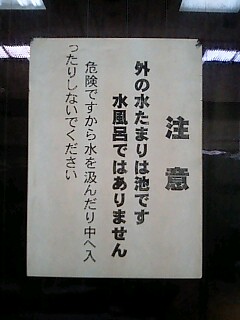 注意
外の水たまりは池です
水風呂ではありません
危険ですから水を汲んだり中へ入
ったりしないでください